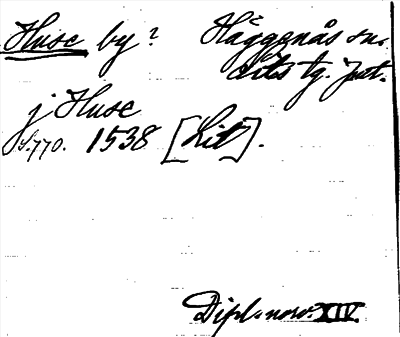 Huse by? Häggenås sn.
Lits tg. Jmt.
j Huse
s. 770. 1538 [Lit].
Dipl. norv. XIV.